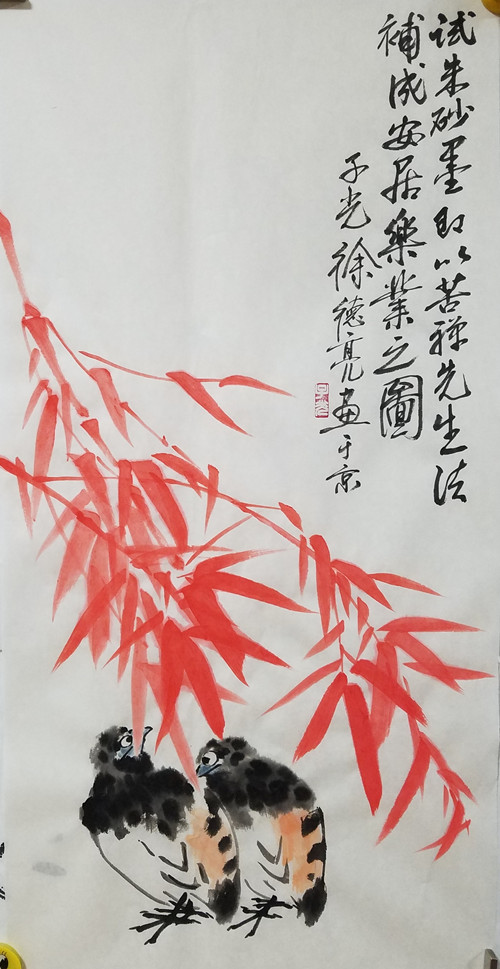 试朱砂墨即以苦禅先生法
補成安居樂業之圖
子光徐德亮画于京